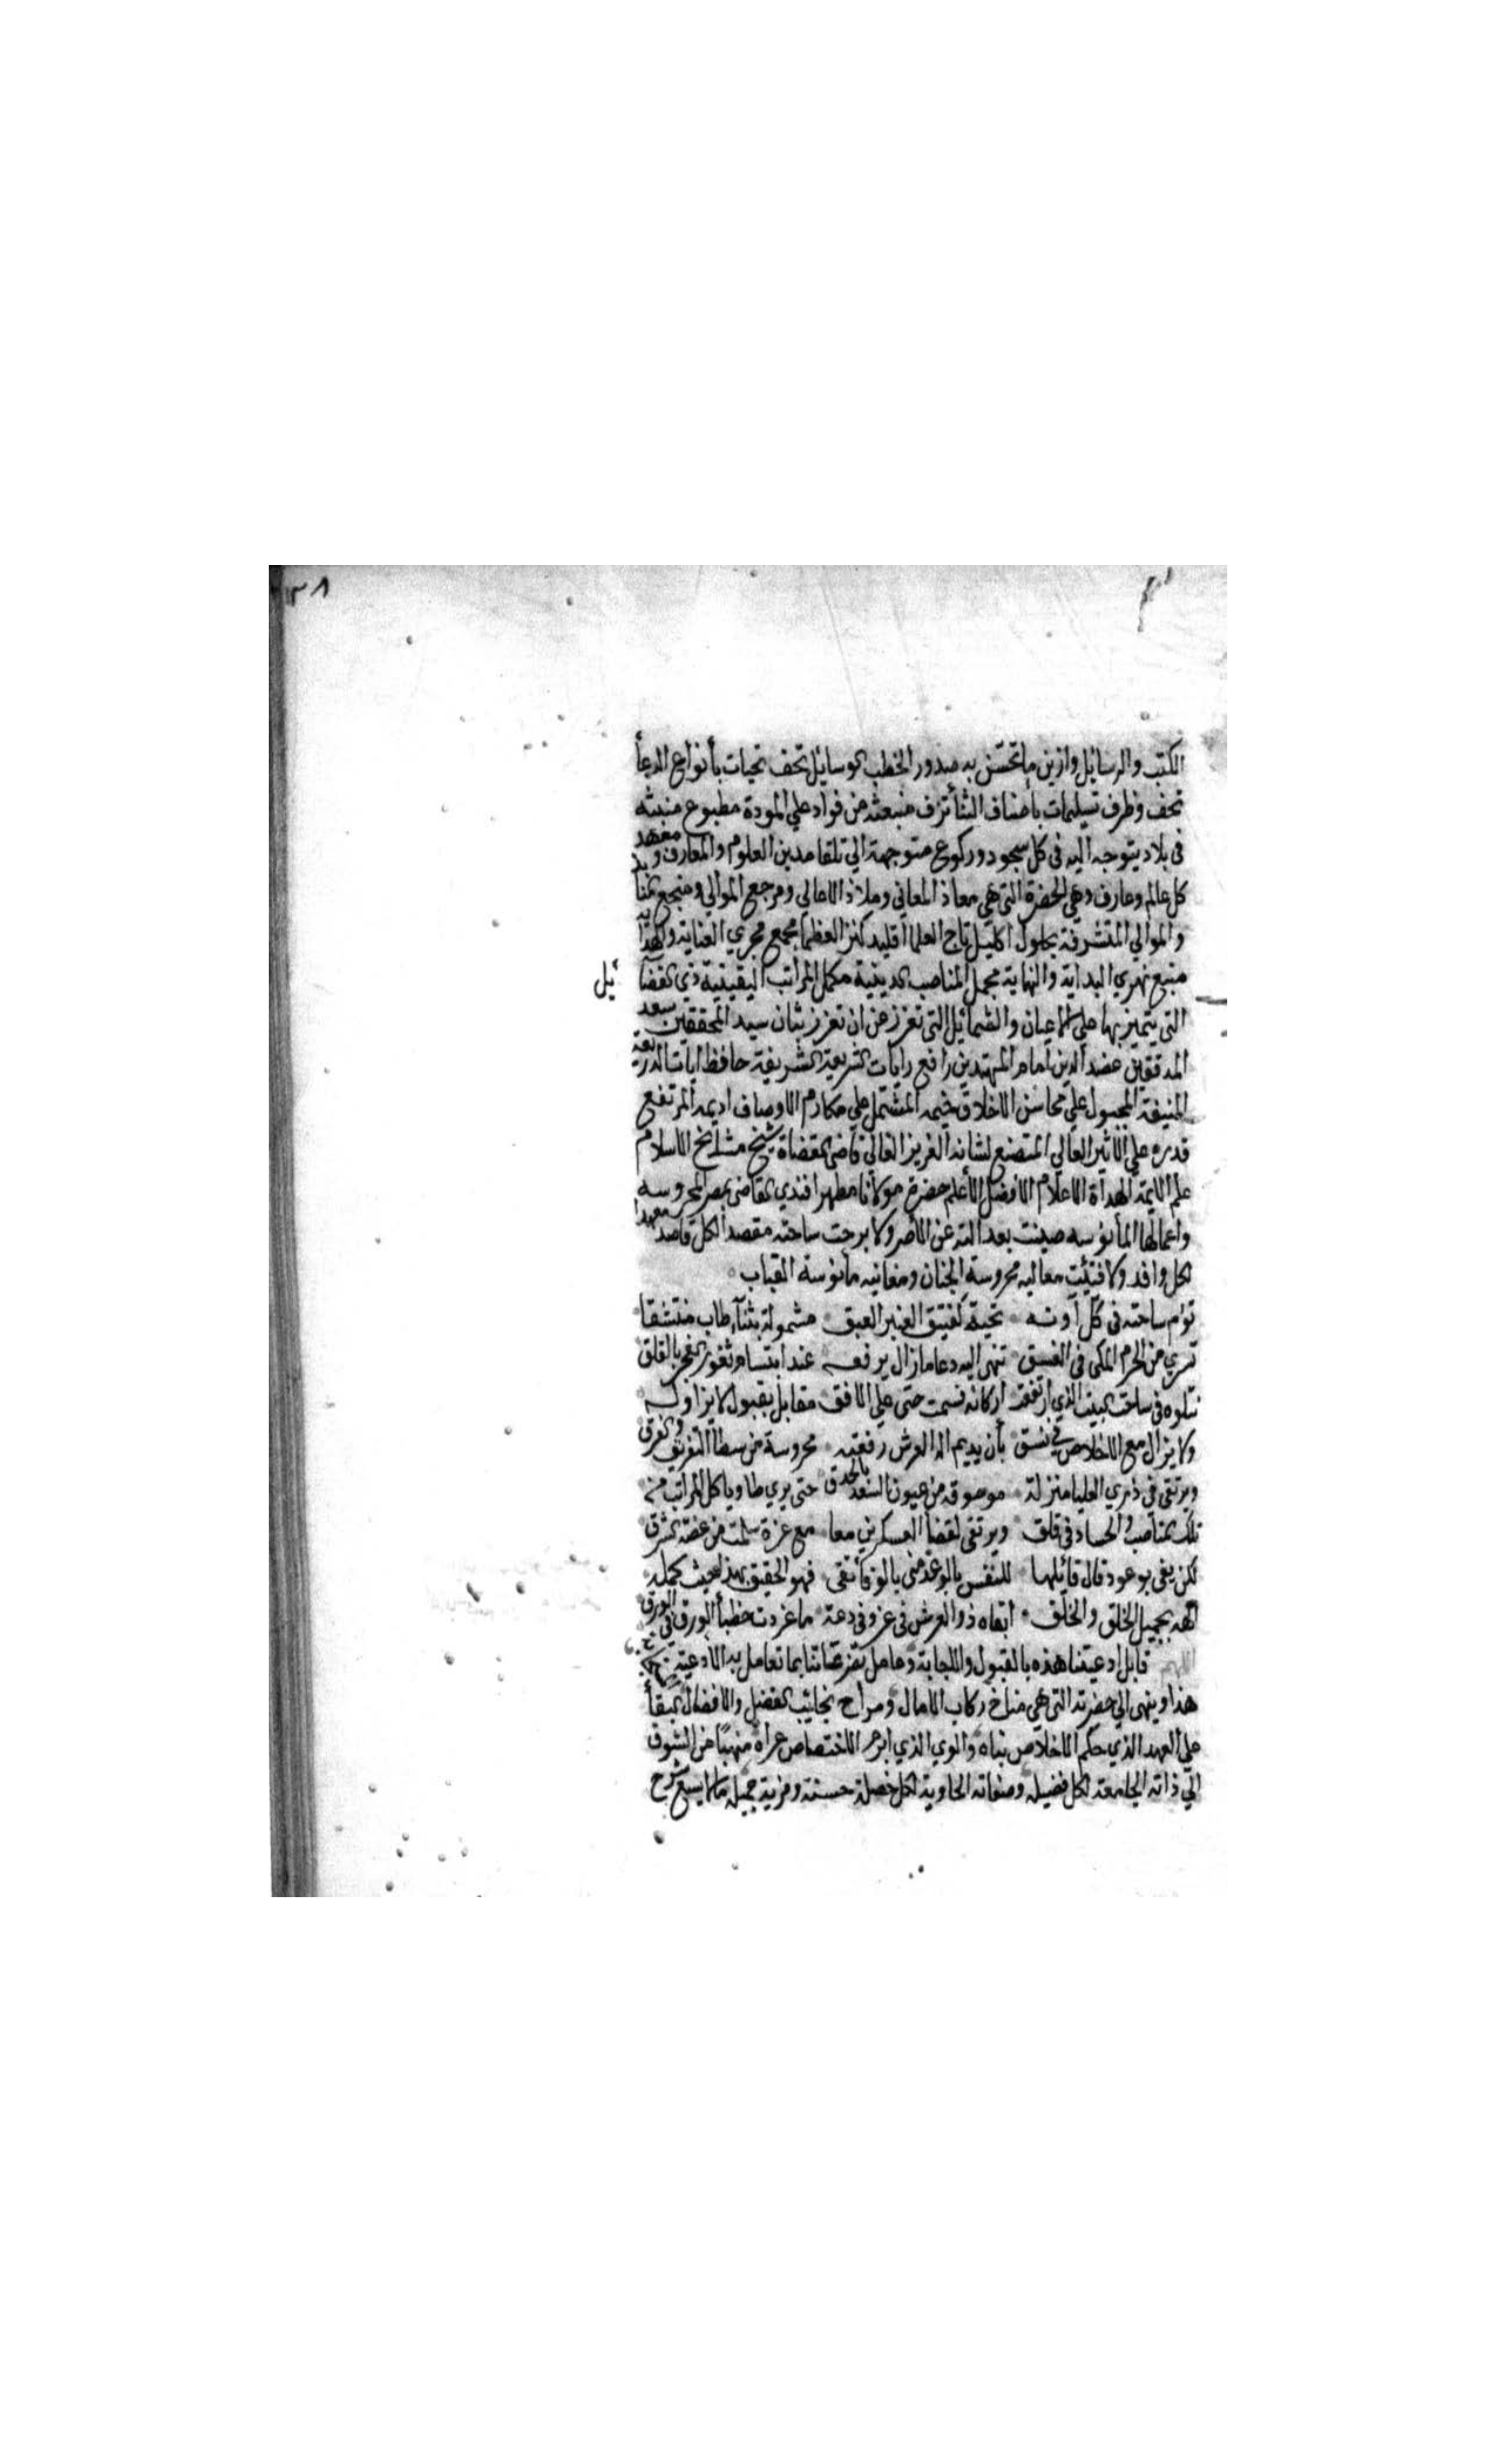 ٣٨
الكتب والرسايل وازين ما تحسن به صدور الخطب الوسايل تحف تحيات بأنواع الدعأ
تحف وظرف تسليمات باصناف الثنأ تزف منبعثه من فواد علي المودة مطبوع منبثه
في بلاد يتوجه اليه في كل سجود وركوع متوجهة الي تلقا مدين العلوم والمعارف ومعهد
كل عالم وعارف وهي الحضرة التي هي معاذ المعاني وملاذ الاعالي ومرجع الموالي ومنجع
والموالي المتشرفة بحلول اكليل تاج العلما اقليد كنز العظما مجمع مجري العناية والهدايه
منبع نهري البداية والنهاية مجمل المناصب الدينية مكمل المراتب اليقينية ذي الفضا
ئل
التي يتميز بها علي الاعيان والشمائل التي تعزز عن ان تعزز بثان سيد المحققين سعد
المدققين عضد الدين امام المهتدين رافع رايات الشريعة الشريفة حافظ ايات الذريعة
المنيفة المجبول علي محاسن الاخلاق خيمه المشتمل علي مكارم الاوصاف اديمه المرتفع
قدره علي الاثير العالي المتصنع لشانه العزيز الغالي قاضي القضاة شيخ مشايخ الاسلام
علم الايمة الهداة الاعلام الافضل الأعلم حضرة مولانا مطهر افندي القاضي بمصر المحروسه
واعمالها المأنوسه صينت بعدالته عن الاصر ولا برحت ساحته مقصدا لكل قاصد معهدا
لكل وافد ولا فتئت معاليه محروسة الجنان ومغانيه مأنوسة القباب
توام ساحته في كل آونه تحية كفتيق العنبر العبق مشمولة بثنآء طاب منتشقا
تسري من الحرم المكي في الغسق تنهي اليه دعا مازال يرفعه عند ابتسام ثغور الفجر بالفلق
نتلوه في ساحت البيت الذي ارتفعت اركانه فسمت حتي علي الافق مقابل بقبول لا يزاوله
ولا يزال مع الاخلاص في نسق بأن يديم اله العرش رفعته محروسة من سطا التفريق والفرق
ويرتقي في ذري العليا منزلة موموقه من عيون السعد بالحدق حتي يري طاويا كل المراتب من
تلك المناصب والحساد في قلق ويرتقي لقضا العسكرين معا مع عزة سلمت من غصة الشرق
لكن يفي بوعود قال قائلها للنفس بالوعد مني بالوفا ثقي فهو الحقيق بهذا حيث كمله
الهه بجميل الخلق والخلق ابقاه ذو العرش في عز وفي دعة ما غردت خطبا الورق في الورق
اللهم قابل ادعيتنا هذه بالقبول والاجابة وعامل تضرعاتنا بما تعامل به الأدعية
هذا وينهي الي حضرته التي هي مناخ ركاب الامال ومراح نجائب الفضل والافضال البقأ
علي العهد الذي حكم الاخلاص بناه والوي الذي ابرم الاختصاص عراه منهيًا من الشوق
الي ذاته الجامعة لكل فضيله وصفاته الحاوية لكل خصلة حسنة ومزية جميله مالا يسع شرح